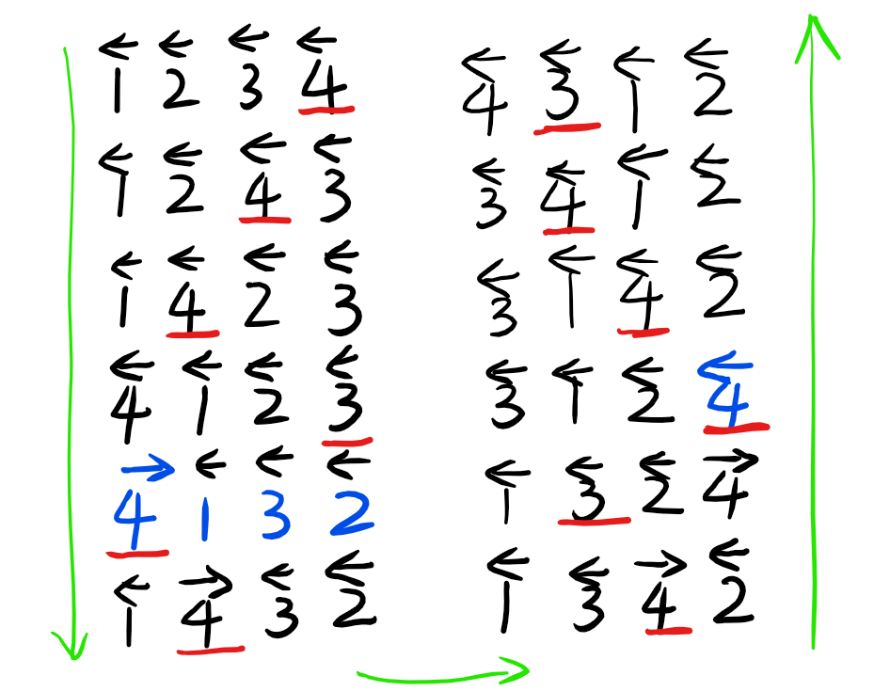 1 2 3 4
1 2 4 3
1 4 2 3
4 1 2 3
4 1 3 2
1 4 3 2
4 3 1 2
3 4 1 2
3 1 4 2
3 1 2 4
1 3 2 4
1 3 4 2